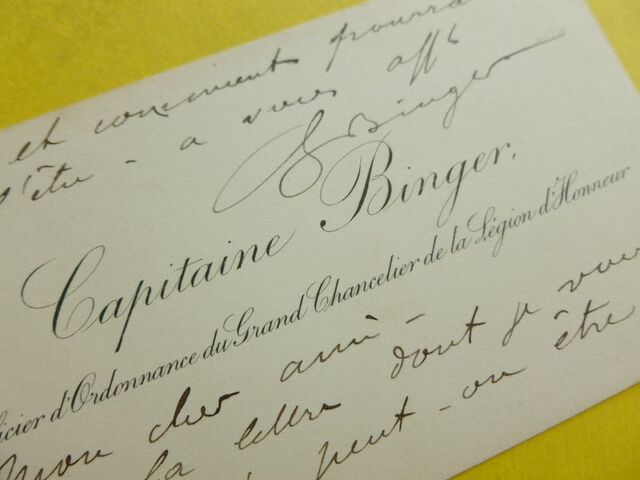 et comment pourra
l'être - a vous affte
G Binger
Capitaine Binger.
icier d'Ordonnance du Grand Chancelier de la Légion d'Honneur
Mon cher ami -
la lettre dont je vou
peut-on être